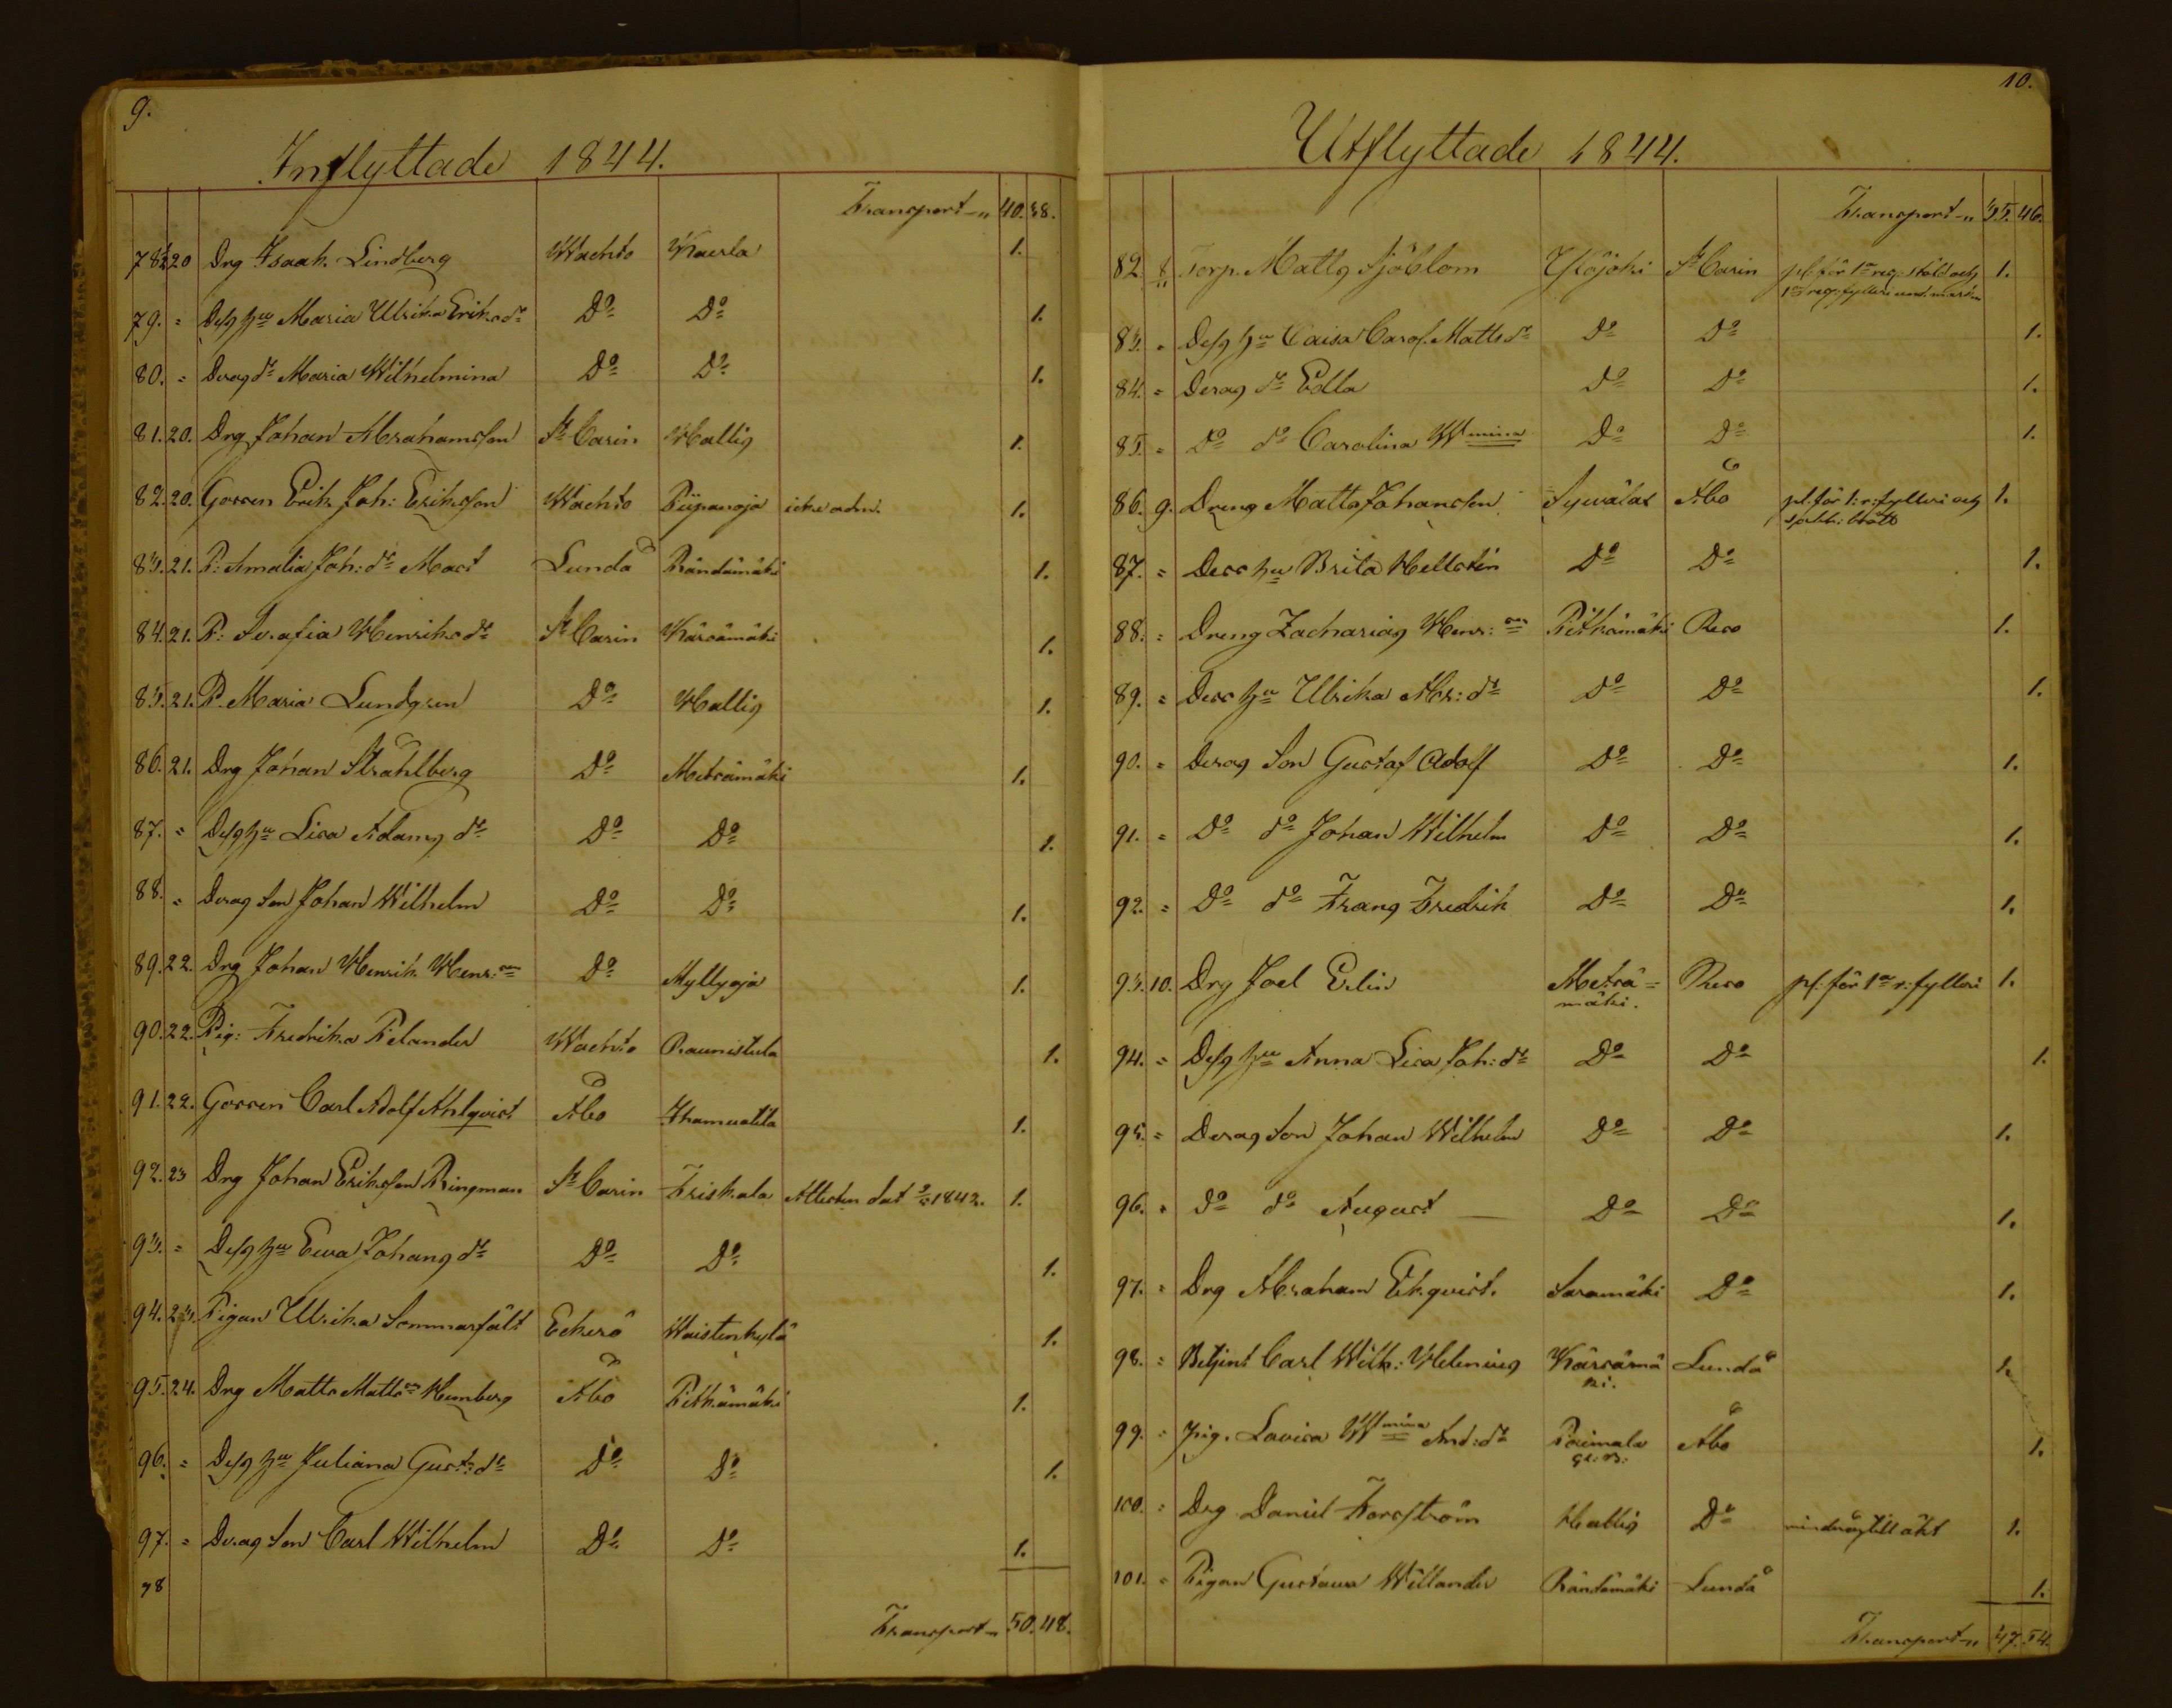 9.
Inflyttade 1844.
Transport " 40. 38.
78. 20 Drg Isaak Lindberg Wachto Kaerla 1.
79. = Dess hu Maria Ulrika Eriksdr Do Do 1.
80. = Deras dr Maria Wilhelmina Do Do 1.
81. 20. Drg Johan Abrahamsson St Carin Hallis 1.
82. 20. Gossen Erik Joh: Eriksson Wachto Piipanoja icke adm. 1.
83. 21. P: Amalia Joh: dr Mart Lundå Rändämäki 1.
84. 21. P: Serafia Henriksdr St Carin Kärsämäki 1.
85. 21. P. Maria Lundgren Do Hallis 1.
86. 21. Drg Johan Stråhlberg Do Metsämäki 1.
87. = Dess hu Lisa Adams dr Do Do 1.
88. = Deras Son Johan Wilhelm Do Do 1.
89. 22. Drg Johan Henrik Henr: son Do Myllyoja 1.
90. 22. Pig: Fredrika Pelander Wachto Raunistula 1.
91. 22. Gossen Carl Adolf Ahlqvist Åbo Ihamuotila 1.
92. 23 Drg Johan Eriksson Ringman St Carin Friskala Attesten dat 1842. 1.
93. = Dess hu Ewa Johans dr Do Do 1.
94. 23. Pigan Ulrika Sommarfält Eckerö Waistenkylä 1.
95. 24. Drg Matts Matts son Humberg Åbo Pitkämäki 1.
96. = Dess hu Juliana Gust: dr Do Do 1.
97. = Deras Son Carl Wilhelm Do Do 1.
98
Transport 50. 48.
10.
Utflyttade 1844.
Transport " 35. 46.
82. 8 Torp. Matts Sjöblom Yköjoki St Carin pl. för 1a res. stöld och 1. 
1a res. fylleri
83. = Dess hu Caisa Carol. Mattsdr Do Do 1.
84. = Deras dr Edla Do Do 1.
85. = Do do Carolina Wmina Do Do 1.
86. 9. Dreng Matts Johansson Sywälax Åbo pl. för 1: r: fylleri och 1.
brott
87. = Dess hu Brita Hellstén Do Do 1.
88. = Dreng Zacharias Henr: son Pitkämäki Reso 1.
89. = Dess hu Ulrika Abr: dr Do Do 1.
90. = Deras Son Gustaf Adolf Do Do 1.
91. = Do do Johan Wilhelm Do Do 1.
92. = Do do Frans Fredrik Do Do 1.
93. 10. Drg Joel Elin Metsä= Reso pl. för 1a r: fylleri 1.
mäki.
94. = Dess hu Anna Lisa Joh: dr Do Do 1.
95. = Deras Son Johan Wilhelm Do Do 1.
96. = Do do August Do Do 1.
97. = Drg Abraham Ekqvist. Saramäki Do 1.
98. = Betjent Carl Wilh: Helenius Kärsämä Lundå 1.
ki.
99. = Pig. Lovisa Wmina And: dr Paimala Åbo 1.
100. = Drg Daniel Forsström Hallis Do 1.
101. = Pigan Gustava Willander Rändämäki Lundå 1.
Transport " 47. 54.